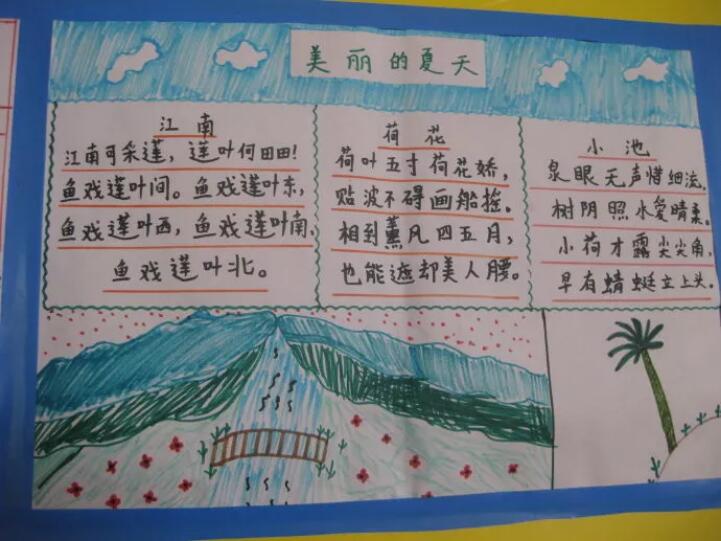 美丽的夏天
江南
江南可采莲，莲叶何田田！
鱼戏莲叶间。鱼戏莲叶东，
鱼戏莲叶西，鱼戏莲叶南，
鱼戏莲叶北。
荷花
荷叶五寸荷花娇，
贴波不碍画船摇。
相到薰风四五月，
也能遮却美人腰。
小池
泉眼无声惜细流，
树阴照水爱晴柔。
小荷才露尖尖角，
早有蜻蜓立上头。